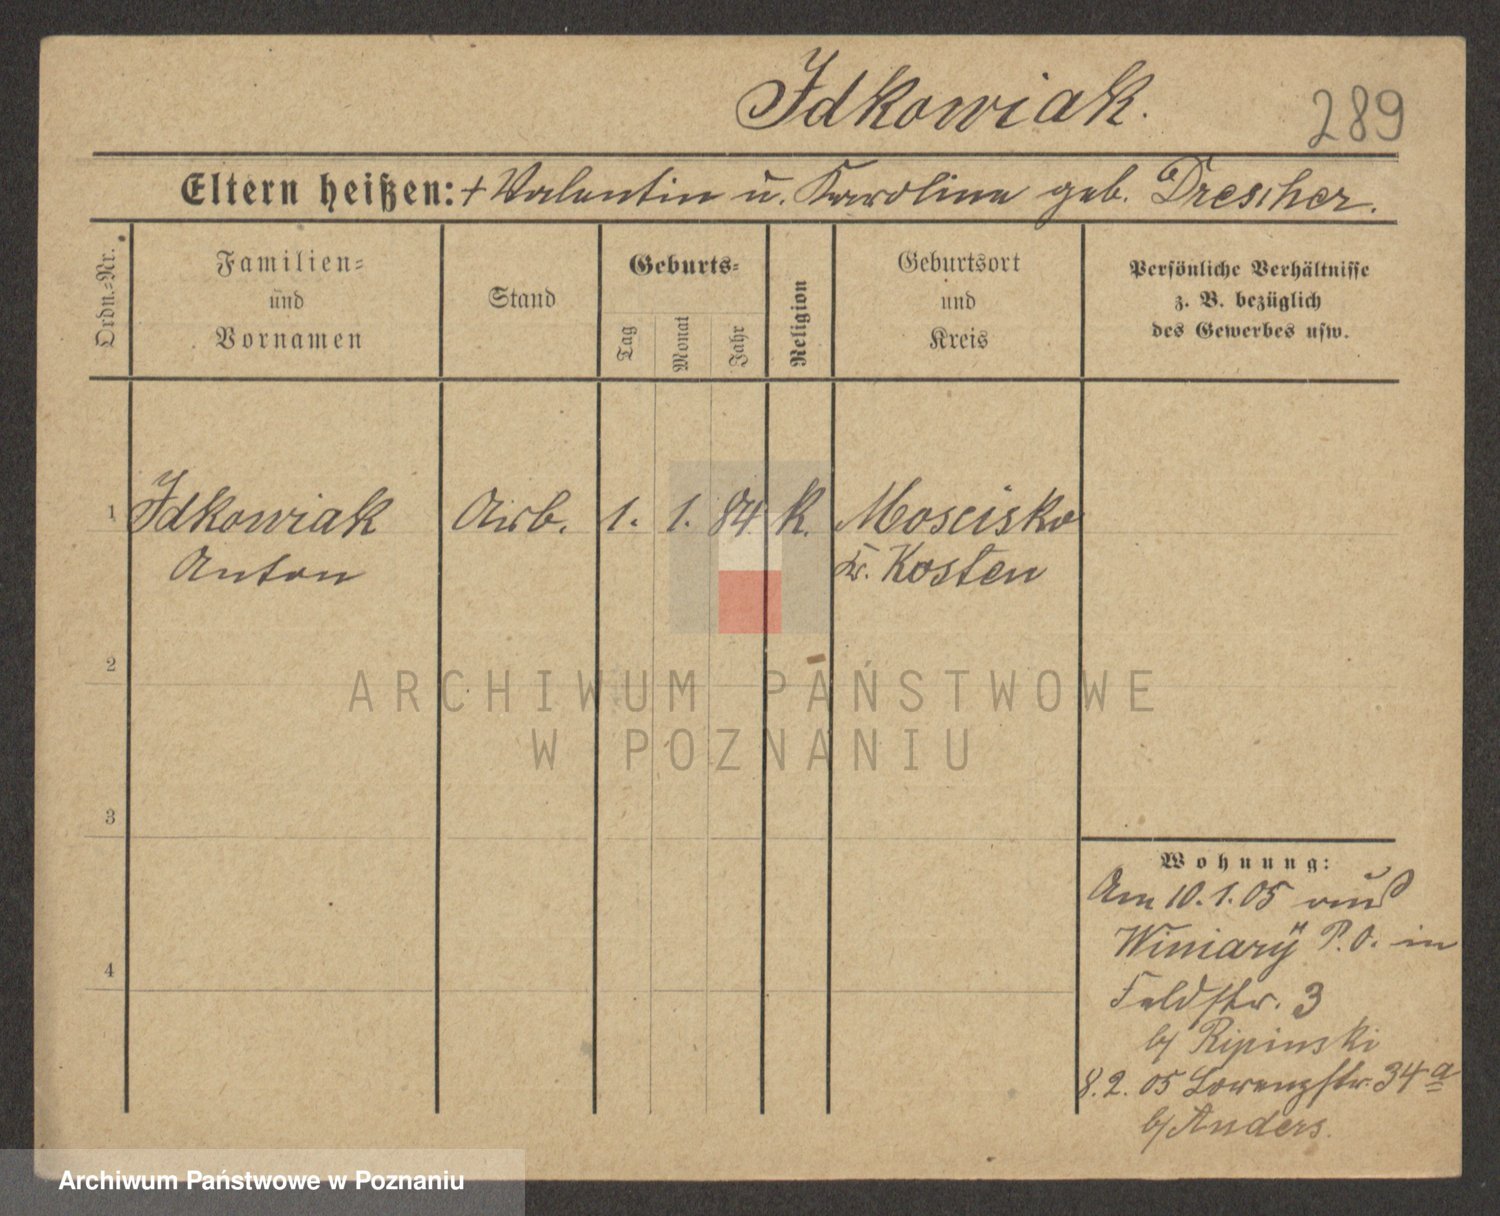 Idkowiak.
289
Eltern heißen: + Valentin u. Karoline geb. Drescher.
Ordn.-Nr.
Familien-
und
Vornamen
Stand
Geburts-
Tag
Monat
Jahr
Religion
Geburtsort
und
Kreis
Persönliche Verhältnisse
z. B. bezüglich
des Gewerbes usw.
1 Idkowiak Arb. 1. 1. 84 K. Moscisko
Anton Kr. Kosten
2
ARCHIWUM PAŃSTWOWE
W POZNANIU
3
Wohnung:
Am 10.1.05 aus
Winiary P.O. in
4
Feldstr. 3
b/ Ripinski
8.2.05 Lorenzstr. 34a
b/ Anders.
Archiwum Państwowe w Poznaniu